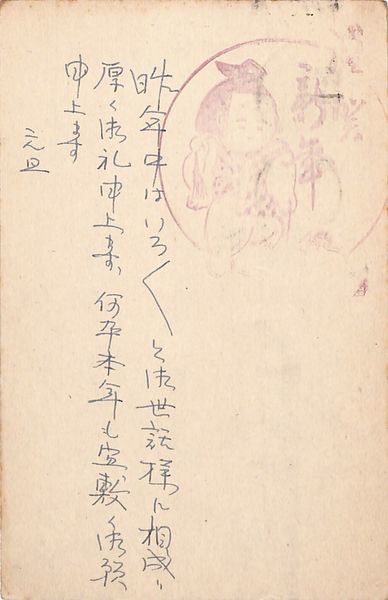 新年
昨年中はいろ〱と御世話様に相成り
厚く御礼申上ます、何卒本年も宜敷御願
申上ます
元旦